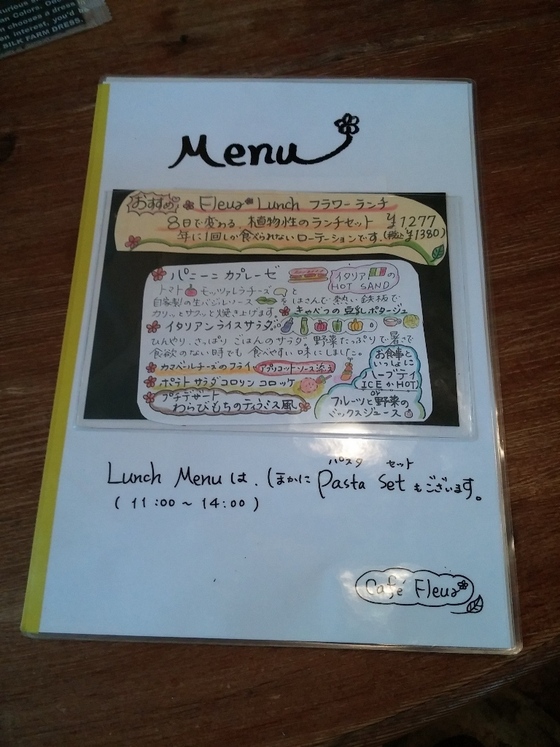 SILK FARM DRESS.
Menu
おすすめ Fleur Lunch フラワーランチ
8日で変わる、植物性のランチセット ¥1277
年に1回しか食べられないローテーションです。(税込¥1380)
パニーニ カプレーゼ
イタリアの
HOT SAND
トマト モッツァレラチーズ と
自家製の生バジルソース をはさんで、熱い鉄板で
カリッとサクッと焼き上げます。
キャベツの豆乳ポタージュ
イタリアンライスサラダ
ひんやり、さっぱり ごはんのサラダ。野菜たっぷりで暑さで
食欲のない時でも 食べやすい味にしました。
カマンベールチーズのフライ アプリコットソース添え
ポテトサラダコロッケ
プチデザート
わらびもちのティラミス風
お食事と
いっしょに
ハーブティ
ICE か HOT
or
フルーツと野菜の
ミックスジュース
Lunch Menuは、ほかに Pasta Set もございます。
パスタ セット
( 11:00 ~ 14:00 )
Café Fleur